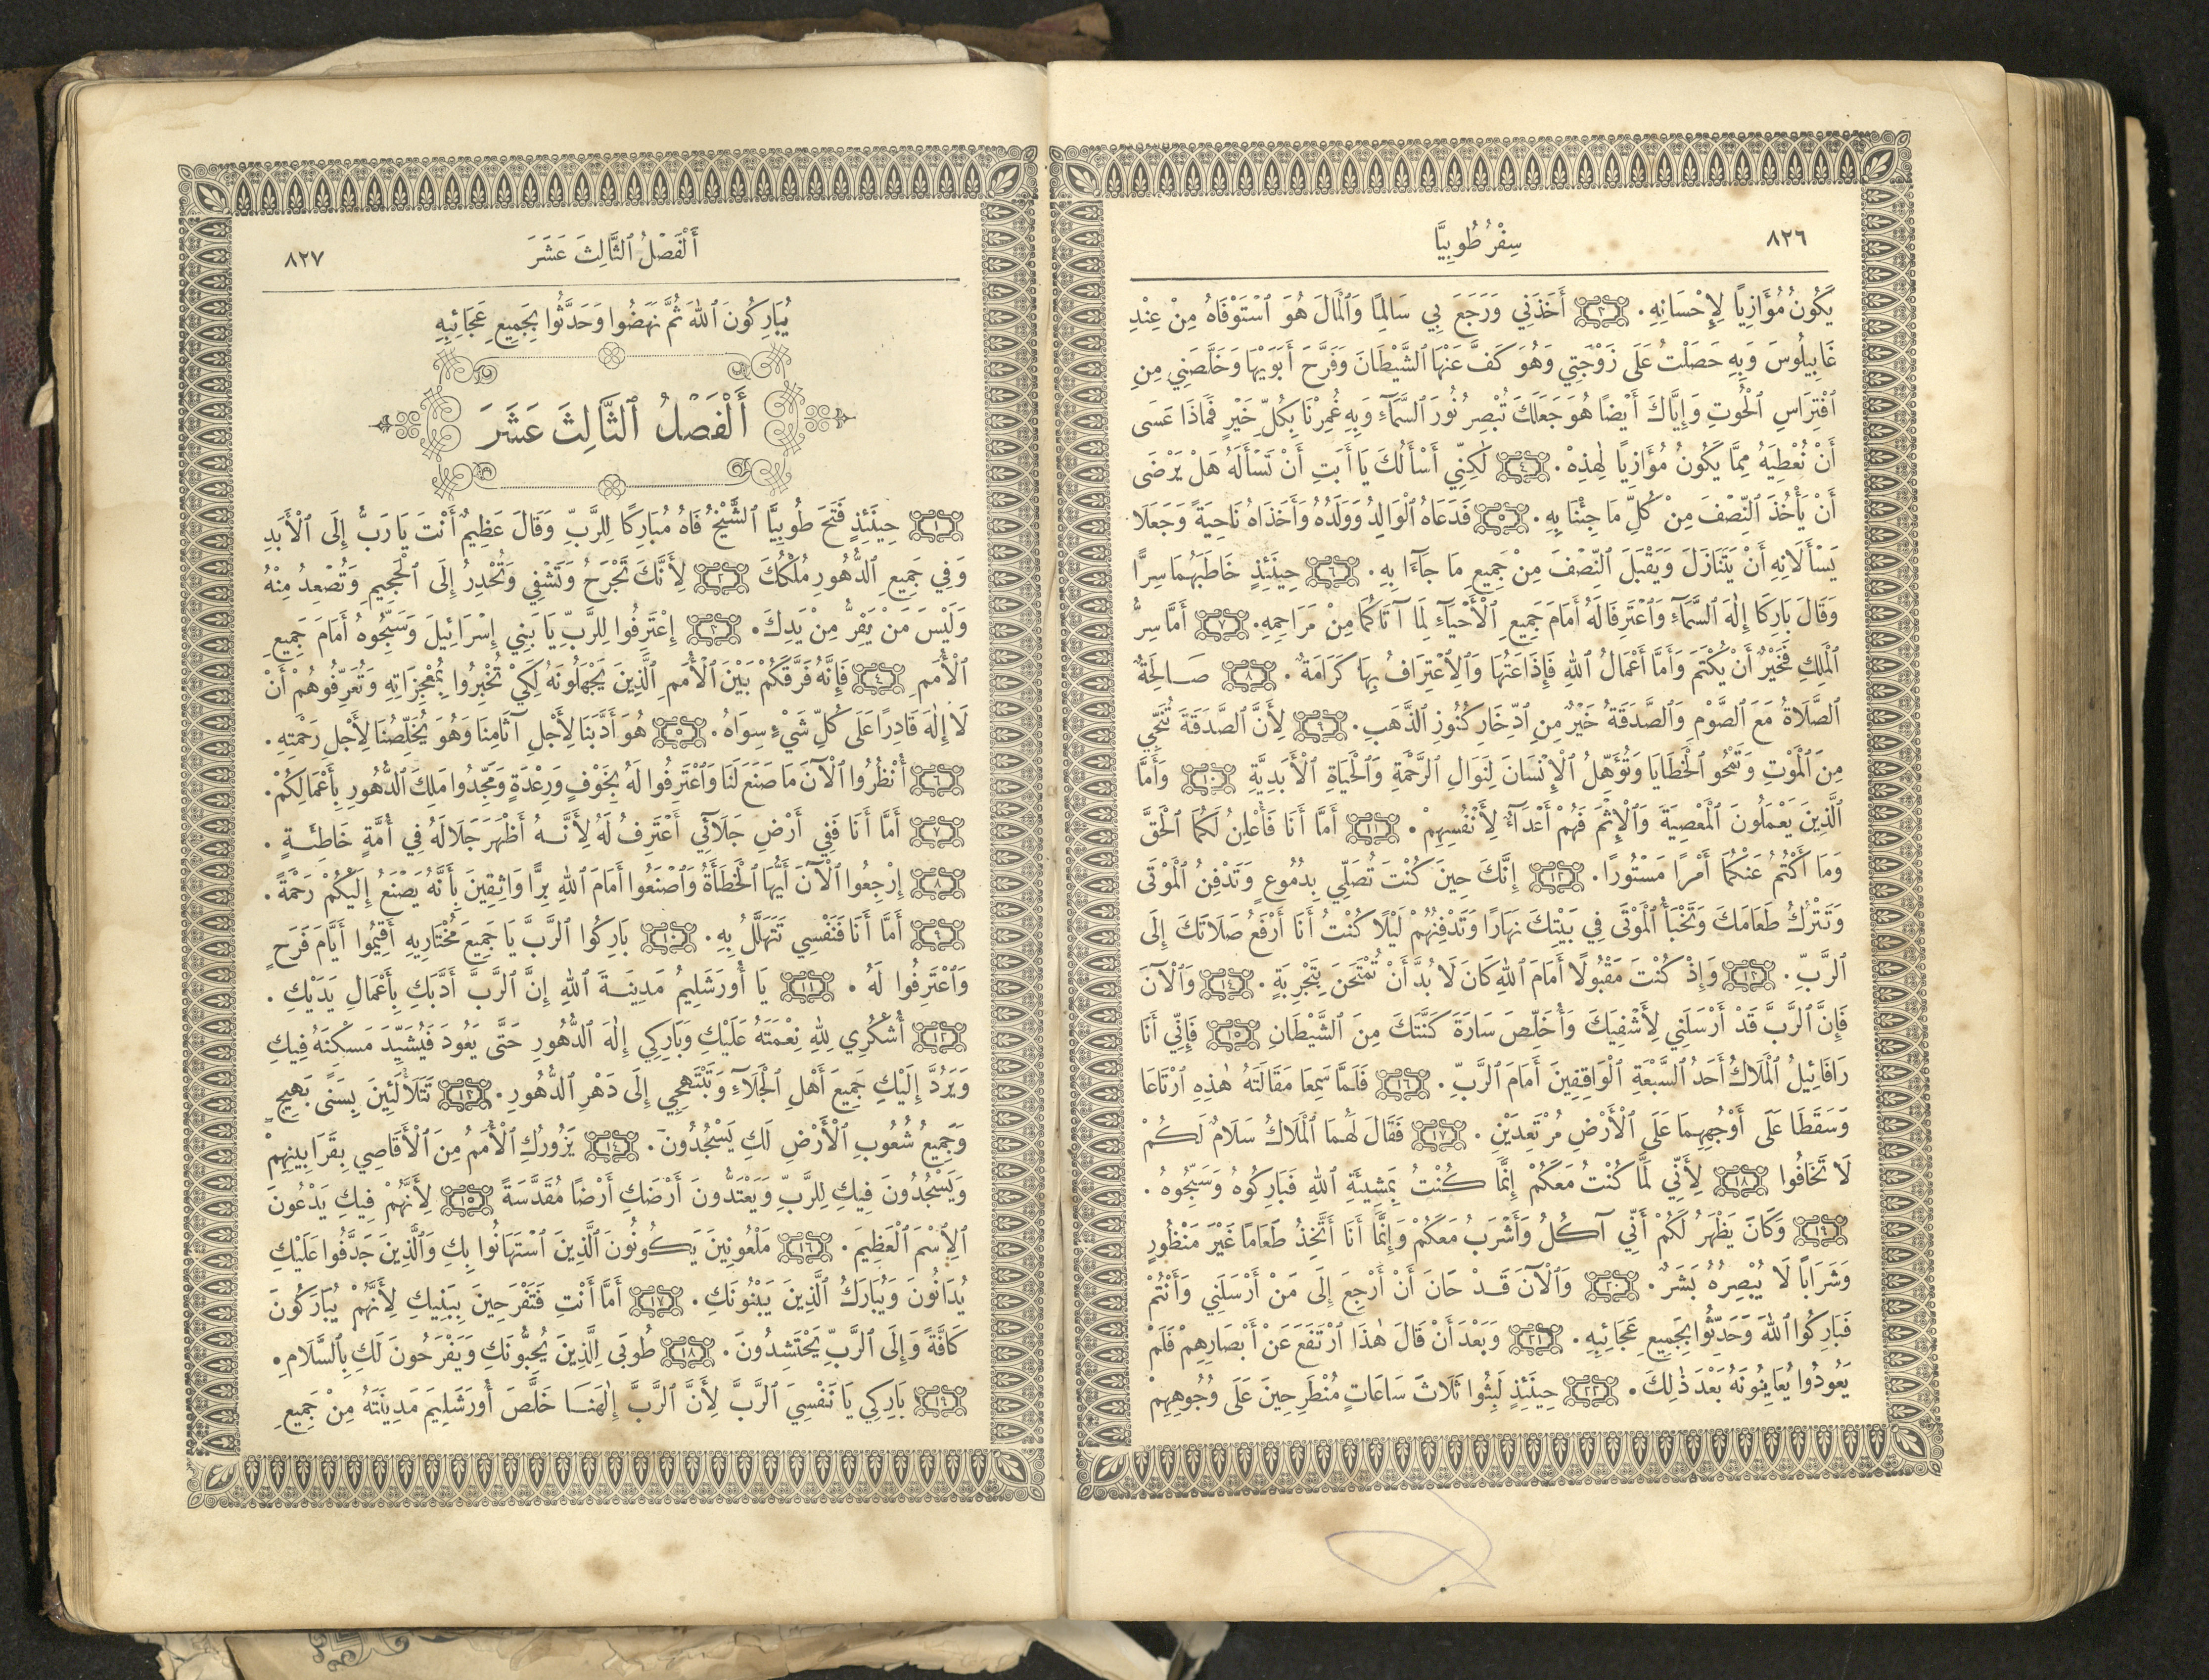 ٨٢٦
سِفْرُ طُوبِيَّا
يَكُونُ مُؤَازِيًا لِإِحْسَانِهِ. ٣ أَخَذَنِي وَرَجَعَ بِي سَالِمًا وَٱلْمَالَ هُوَ ٱسْتَوْفَاهُ مِنْ عِنْدِ
غَابِيلُوسَ وَبِهِ حَصَلْتُ عَلَى زَوْجَتِي وَهُوَ كَفَّ عَنْهَا ٱلشَّيْطَانَ وَفَرَّحَ أَبَوَيْهَا وَخَلَّصَنِي مِنِ
ٱفْتِرَاسِ ٱلْحُوتِ وَإِيَّاكَ أَيْضًا هُوَ جَعَلَكَ تُبْصِرُ نُورَ ٱلسَّمَآءِ وَبِهِ غُمِرْنَا بِكُلِّ خَيْرٍ فَمَاذَا عَسَى
أَنْ نُعْطِيَهُ مِمَّا يَكُونُ مُؤَازِيًا لِهٰذِهْ. ٤ لٰكِنِّي أَسْأَلُكَ يَا أَبَتِ أَنْ تَسْأَلَهُ هَلْ يَرْضَى
أَنْ يَأْخُذَ ٱلنِّصْفَ مِنْ كُلِّ مَا جِئْنَا بِهِ. ٥ فَدَعَاهُ ٱلْوَالِدُ وَوَلَدُهُ وَأَخَذَاهُ نَاحِيَةً وَجَعَلَا
يَسْأَلَانِهِ أَنْ يَتَنَازَلَ وَيَقْبَلَ ٱلنِّصْفَ مِنْ جَمِيعِ مَا جَآءَا بِهِ. ٦ حِينَئِذٍ خَاطَبَهُمَا سِرًّا
وَقَالَ بَارِكَا إِلٰهَ ٱلسَّمَآءِ وَٱعْتَرِفَا لَهُ أَمَامَ جَمِيعِ ٱلْأَحْيَآءِ لِمَا آتَاكُمَا مِنْ مَرَاحِمِهِ. ٧ أَمَّا سِرُّ
ٱلْمَلِكِ فَخَيْرٌ أَنْ يُكْتَمَ وَأَمَّا أَعْمَالُ ٱللهِ فَإِذَاعَتُهَا وَٱلِٱعْتِرَافُ بِهَا كَرَامَةٌ. ٨ صَالِحَةٌ
ٱلصَّلَاةُ مَعَ ٱلصَّوْمِ وَٱلصَّدَقَةُ خَيْرٌ مِنِ ٱدِّخَارِ كُنُوزِ ٱلذَّهَبِ. ٩ لِأَنَّ ٱلصَّدَقَةَ تُنَجِّي
مِنَ ٱلْمَوْتِ وَتَمْحُو ٱلْخَطَايَا وَتُؤَهِّلُ ٱلْإِنْسَانَ لِنَوَالِ ٱلرَّحْمَةِ وَٱلْحَيَاةِ ٱلْأَبَدِيَّةِ ١٠ وَأَمَّا
ٱلَّذِينَ يَعْمَلُونَ ٱلْمَعْصِيَةَ وَٱلْإِثْمَ فَهُمْ أَعْدَآءٌ لِأَنْفُسِهِمْ. ١١ أَمَّا أَنَا فَأُعْلِنُ لَكُمَا ٱلْحَقَّ
وَمَا أَكْتُمُ عَنْكُمَا أَمْرًا مَسْتُورًا. ١٢ إِنَّكَ حِينَ كُنْتَ تُصَلِّي بِدُمُوعٍ وَتَدْفِنُ ٱلْمَوْتَى
وَتَتْرُكُ طَعَامَكَ وَتَخْبَأُ ٱلْمَوْتَى فِي بَيْتِكَ نَهَارًا وَتَدْفِنُهُمْ لَيْلًا كُنْتُ أَنَا أَرْفَعُ صَلَاتَكَ إِلَى
ٱلرَّبِّ. ١٣ وَإِذْ كُنْتَ مَقْبُولًا أَمَامَ ٱللهِ كَانَ لَا بُدَّ أَنْ تُمْتَحَنَ بِتَجْرِبَةٍ. ١٤ وَٱلْآنَ
فَإِنَّ ٱلرَّبَّ قَدْ أَرْسَلَنِي لِأَشْفِيَكَ وَأُخَلِّصَ سَارَةَ كَنَّتَكَ مِنَ ٱلشَّيْطَانِ ١٥ فَإِنِّي أَنَا
رَافَائِيلُ ٱلْمَلَاكُ أَحَدُ ٱلسَّبْعَةِ ٱلْوَاقِفِينَ أَمَامَ ٱلرَّبِّ. ١٦ فَلَمَّا سَمِعَا مَقَالَتَهُ هٰذِهِ ٱرْتَاعَا
وَسَقَطَا عَلَى أَوْجُهِهِمَا عَلَى ٱلْأَرْضِ مُرْتَعِدَيْنِ. ١٧ فَقَالَ لَهُمَا ٱلْمَلَاكُ سَلَامٌ لَكُمْ
لَا تَخَافُوا ١٨ لِأَنِّي لَمَّا كُنْتُ مَعَكُمْ إِنَّمَا كُنْتُ بِمَشِيئَةِ ٱللهِ فَبَارِكُوهُ وَسَبِّحُوهُ.
١٩ وَكَانَ يَظْهَرُ لَكُمْ أَنِّي آكُلُ وَأَشْرَبُ مَعَكُمْ وَإِنَّمَا أَنَا أَتَّخِذُ طَعَامًا غَيْرَ مَنْظُورٍ
وَشَرَابًا لَا يُبْصِرُهُ بَشَرٌ. ٢٠ وَٱلْآنَ قَدْ حَانَ أَنْ أَرْجِعَ إِلَى مَنْ أَرْسَلَنِي وَأَنْتُمْ
فَبَارِكُوا ٱللهَ وَحَدِّثُوا بِجَمِيعِ عَجَائِبِهِ. ٢١ وَبَعْدَ أَنْ قَالَ هٰذَا ٱرْتَفَعَ عَنْ أَبْصَارِهِمْ فَلَمْ
يَعُودُوا يُعَايِنُونَهُ بَعْدَ ذٰلِكَ. ٢٢ حِينَئِذٍ لَبِثُوا ثَلَاثَ سَاعَاتٍ مُنْطَرِحِينَ عَلَى وُجُوهِهِمْ
أَلْفَصْلُ ٱلثَّالِثَ عَشَرَ
٨٢٧
يُبَارِكُونَ ٱللهَ ثُمَّ نَهَضُوا وَحَدَّثُوا بِجَمِيعِ عَجَائِبِهِ
أَلْفَصْلُ ٱلثَّالِثَ عَشَرَ
١ حِينَئِذٍ فَتَحَ طُوبِيَّا ٱلشَّيْخُ فَاهُ مُبَارِكًا لِلرَّبِّ وَقَالَ عَظِيمٌ أَنْتَ يَا رَبُّ إِلَى ٱلْأَبَدِ
وَفِي جَمِيعِ ٱلدُّهُورِ مُلْكُكَ ٢ لِأَنَّكَ تَجْرَحُ وَتَشْفِي وَتُحْدِرُ إِلَى ٱلْجَحِيمِ وَتُصْعِدُ مِنْهُ
وَلَيْسَ مَنْ يَفِرُّ مِنْ يَدِكَ. ٣ إِعْتَرِفُوا لِلرَّبِّ يَا بَنِي إِسْرَائِيلَ وَسَبِّحُوهُ أَمَامَ جَمِيعِ
ٱلْأُمَمِ ٤ فَإِنَّهُ فَرَّقَكُمْ بَيْنَ ٱلْأُمَمِ ٱلَّذِينَ يَجْهَلُونَهُ لِكَيْ تُخْبِرُوا بِمُعْجِزَاتِهِ وَتُعَرِّفُوهُمْ أَنْ
لَا إِلٰهَ قَادِرًا عَلَى كُلِّ شَيْءٍ سِوَاهُ. ٥ هُوَ أَدَّبَنَا لِأَجْلِ آثَامِنَا وَهُوَ يُخَلِّصُنَا لِأَجْلِ رَحْمَتِهِ.
٦ أُنْظُرُوا ٱلْآنَ مَا صَنَعَ لَنَا وَٱعْتَرِفُوا لَهُ بِخَوْفٍ وَرِعْدَةٍ وَمَجِّدُوا مَلِكَ ٱلدُّهُورِ بِأَعْمَالِكُمْ.
٧ أَمَّا أَنَا فَفِي أَرْضِ جَلَائِي أَعْتَرِفُ لَهُ لِأَنَّهُ أَظْهَرَ جَلَالَهُ فِي أُمَّةٍ خَاطِئَةٍ.
٨ إِرْجِعُوا ٱلْآنَ أَيُّهَا ٱلْخَطَأَةُ وَٱصْنَعُوا أَمَامَ ٱللهِ بِرًّا وَاثِقِينَ بِأَنَّهُ يَصْنَعُ إِلَيْكُمْ رَحْمَةً.
٩ أَمَّا أَنَا فَنَفْسِي تَتَهَلَّلُ بِهِ. ١٠ بَارِكُوا ٱلرَّبَّ يَا جَمِيعَ مُخْتَارِيهِ أَقِيمُوا أَيَّامَ فَرَحٍ
وَٱعْتَرِفُوا لَهُ. ١١ يَا أُورَشَلِيمُ مَدِينَةَ ٱللهِ إِنَّ ٱلرَّبَّ أَدَّبَكِ بِأَعْمَالِ يَدَيْكِ.
١٢ أُشْكُرِي لِلهِ نِعْمَتَهُ عَلَيْكِ وَبَارِكِي إِلٰهَ ٱلدُّهُورِ حَتَّى يَعُودَ فَيُشَيِّدَ مَسْكِنَهُ فِيكِ
وَيَرُدَّ إِلَيْكِ جَمِيعَ أَهْلِ ٱلْجَلَآءِ وَتَبْتَهِجِي إِلَى دَهْرِ ٱلدُّهُورِ. ١٣ تَتَلَأْلَئِينَ بِسَنًى بَهِيجٍ
وَجَمِيعُ شُعُوبِ ٱلْأَرْضِ لَكِ يَسْجُدُونَ. ١٤ يَزُورُكِ ٱلْأُمَمُ مِنَ ٱلْأَقَاصِي بِقَرَابِينِهِمْ
وَيَسْجُدُونَ فِيكِ لِلرَّبِّ وَيَعْتَدُّونَ أَرْضَكِ أَرْضًا مُقَدَّسَةً ١٥ لِأَنَّهُمْ فِيكِ يَدْعُونَ
ٱلِٱسْمَ ٱلْعَظِيمَ. ١٦ مَلْعُونِينَ يَكُونُونَ ٱلَّذِينَ ٱسْتَهَانُوا بِكِ وَٱلَّذِينَ جَدَّفُوا عَلَيْكِ
يُدَانُونَ وَيُبَارَكُ ٱلَّذِينَ يَبْنُونَكِ. ١٧ أَمَّا أَنْتِ فَتَفْرَحِينَ بِبَنِيكِ لِأَنَّهُمْ يُبَارَكُونَ
كَافَّةً وَإِلَى ٱلرَّبِّ يَحْتَشِدُونَ. ١٨ طُوبَى لِلَّذِينَ يُحِبُّونَكِ وَيَفْرَحُونَ لَكِ بِٱلسَّلَامِ.
١٩ بَارِكِي يَا نَفْسِيَ ٱلرَّبَّ لِأَنَّ ٱلرَّبَّ إِلٰهَنَا خَلَّصَ أُورَشَلِيمَ مَدِينَتَهُ مِنْ جَمِيعِ